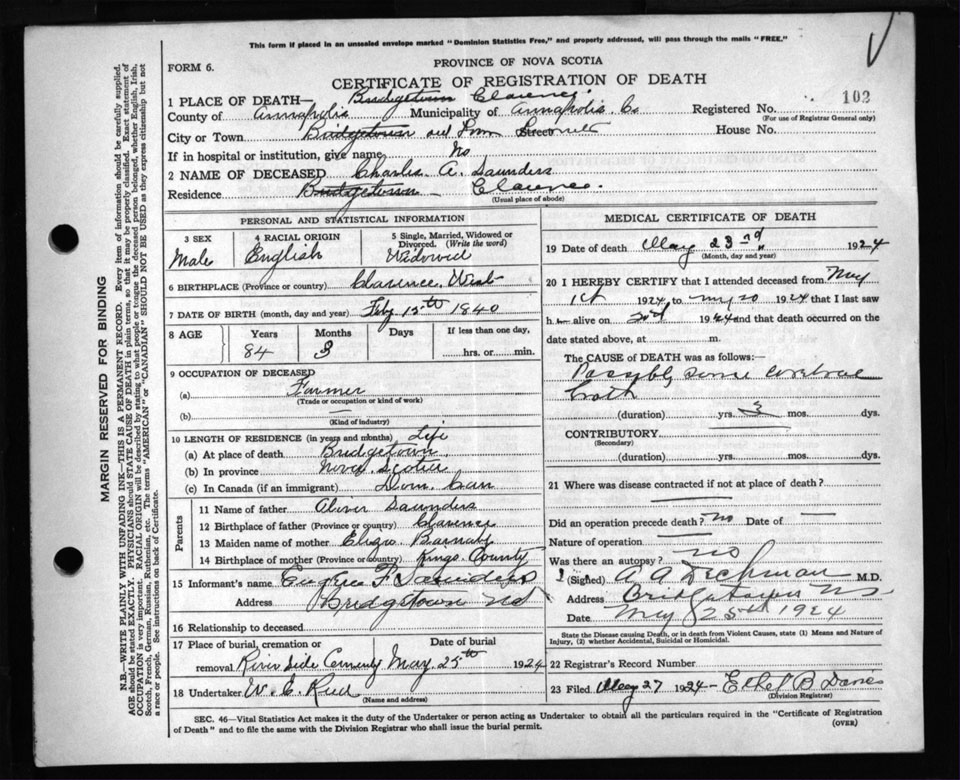 This form if placed in an unsealed envelope marked "Dominion Statistics Free," and properly addressed, will pass through the mails "FREE."
PROVINCE OF NOVA SCOTIA
FORM 6.
CERTIFICATE OF REGISTRATION OF DEATH
1 PLACE OF DEATH— Bridgetown Clarence
County of Annapolis Municipality of Annapolis Co Registered No. 102
(For use of Registrar General only)
City or Town Bridgetown Street House No.
If in hospital or institution, give name No
2 NAME OF DECEASED Charles A. Saunders
Residence Bridgetown Clarence.
(Usual place of abode)
PERSONAL AND STATISTICAL INFORMATION
3 SEX
Male
4 RACIAL ORIGIN
English
5 Single, Married, Widowed or Divorced. (Write the word)
Widowed
6 BIRTHPLACE (Province or country) Clarence West
7 DATE OF BIRTH (month, day and year) Feby 15th 1840
8 AGE Years Months Days If less than one day,
84 3 hrs. or min.
9 OCCUPATION OF DECEASED
(a) Farmer
(Trade or occupation or kind of work)
(b) —
(Kind of industry)
10 LENGTH OF RESIDENCE (in years and months) Life
(a) At place of death Bridgetown
(b) In province Nova Scotia
(c) In Canada (if an immigrant) Dom. Can
Parents
11 Name of father Oliver Saunders
12 Birthplace of father (Province or country) Clarence
13 Maiden name of mother Eliza Barnaby
14 Birthplace of mother (Province or Country) Kings County
15 Informant's name F Saunders
Address Bridgetown NS
16 Relationship to deceased
17 Place of burial, cremation or removal River Side Cemetery Date of burial May 25th 1924
18 Undertaker W. C. Reed
(Name and address)
MEDICAL CERTIFICATE OF DEATH
19 Date of death May 23rd 1924
(Month, day and year)
20 I HEREBY CERTIFY that I attended deceased from May
1st 1924, to May 20 1924 that I last saw
h alive on 20th 1924 and that death occurred on the
date stated above, at m.
The CAUSE OF DEATH was as follows:
Possibly some cerebral
(duration) yrs. 3 mos. dys.
CONTRIBUTORY
(Secondary)
(duration) yrs. mos. dys.
21 Where was disease contracted if not at place of death?
Did an operation precede death? no Date of —
Nature of operation —
Was there an autopsy? no
(Signed) A A Dechman M.D.
Address Bridgetown NS
Date May 25th 1924
State the Disease causing Death, or in death from Violent Causes, state (1) Means and Nature of Injury, (2) whether Accidental, Suicidal or Homicidal.
22 Registrar's Record Number
23 Filed May 27 1924 Ethel B Davies
(Division Registrar)
SEC. 46—Vital Statistics Act makes it the duty of the Undertaker or person acting as Undertaker to obtain all the particulars required in the "Certificate of Registration
of Death" and to file the same with the Division Registrar who shall issue the burial permit.
(OVER)
MARGIN RESERVED FOR BINDING
N.B.—WRITE PLAINLY WITH UNFADING INK—THIS IS A PERMANENT RECORD. Every item of information should be carefully supplied.
AGE should be stated EXACTLY. PHYSICIANS should STATE CAUSE OF DEATH in plain terms, so that it may be properly classified. Exact statement of
OCCUPATION is very important. RACIAL ORIGIN will be described by stating to what people or tongue the deceased person belonged, whether English, Irish,
Scotch, French, German, Russian, Ruthenian, etc. The terms "AMERICAN" or "CANADIAN" SHOULD NOT BE USED as they express citizenship but not
a race or people. See instructions on back of Certificate.